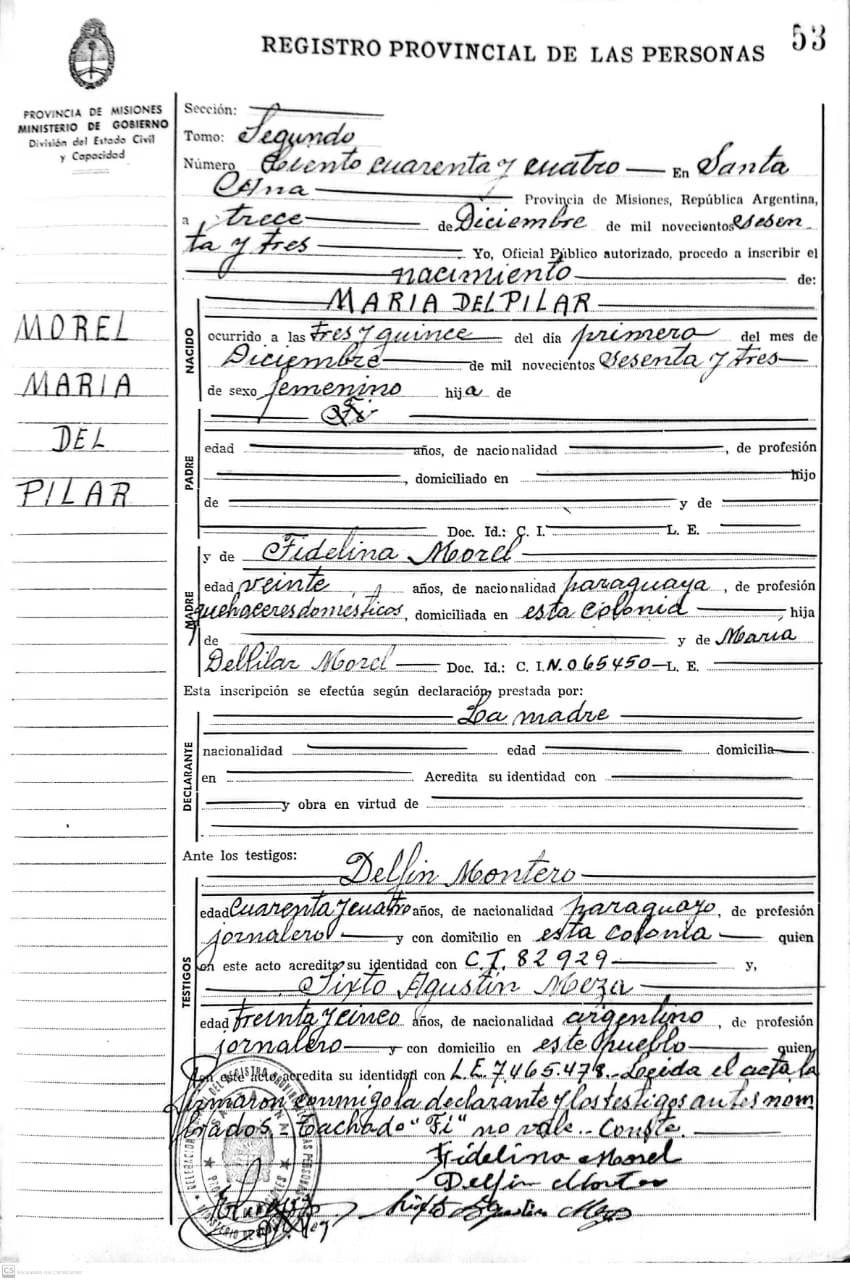 53
REGISTRO PROVINCIAL DE LAS PERSONAS
PROVINCIA DE MISIONES
MINISTERIO DE GOBIERNO
División del Estado Civil
y Capacidad
Sección:
Tomo: Segundo
Número Ciento cuarenta y cuatro En Santa
Ana Provincia de Misiones, República Argentina,
a trece de Diciembre de mil novecientos sesen
ta y tres Yo, Oficial Público autorizado, procedo a inscribir el
nacimiento de:
MARIA DEL PILAR
MOREL
MARIA
DEL
PILAR
NACIDO
ocurrido a las tres y quince del día primero del mes de
Diciembre de mil novecientos sesenta y tres
de sexo femenino hija de
Fi
PADRE
edad años, de nacionalidad , de profesión
, domiciliado en hijo
de y de
Doc. Id.: C. I. L. E.
MADRE
y de Fidelina Morel
edad veinte años, de nacionalidad paraguaya , de profesión
quehaceres domésticos, domiciliada en esta colonia hija
de y de María
Del Pilar Morel Doc. Id.: C. I. N. 065450 L. E.
Esta inscripción se efectúa según declaración prestada por:
La madre
DECLARANTE
nacionalidad edad domicilia
en Acredita su identidad con
y obra en virtud de
Ante los testigos:
TESTIGOS
Delfin Montero
edad cuarenta y cuatro años, de nacionalidad paraguayo, de profesión
jornalero y con domicilio en esta colonia quien
en este acto acredita su identidad con C.I. 82929 y,
Sixto Agustin Meza
edad treinta y cinco años, de nacionalidad argentino , de profesión
jornalero y con domicilio en este pueblo quien
en este acto acredita su identidad con L.E. 7.465.478. Leida el acta la
firmaron conmigo la declarante y los testigos antes nom
brados - Tachado "Fi" no vale.. Conste.
Fidelina Morel
Delfin Montero
Sixto Agustin Meza